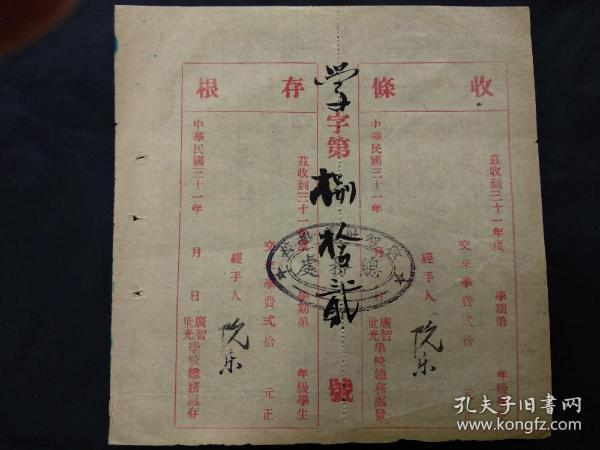 收條
茲收到三十一年度 學期第 年級
交來學費弍拾元
經手人
廣智世光學校總務處發
中華民國三十一年 月 日
学字第捌拾弍號
總務處
存根
茲收到三十一年度 學期第 年級學生
交來學費弍拾元正
經手人
廣智世光學校總務處存
中華民國三十一年 月 日
孔夫子旧书网
www.kongfz.com